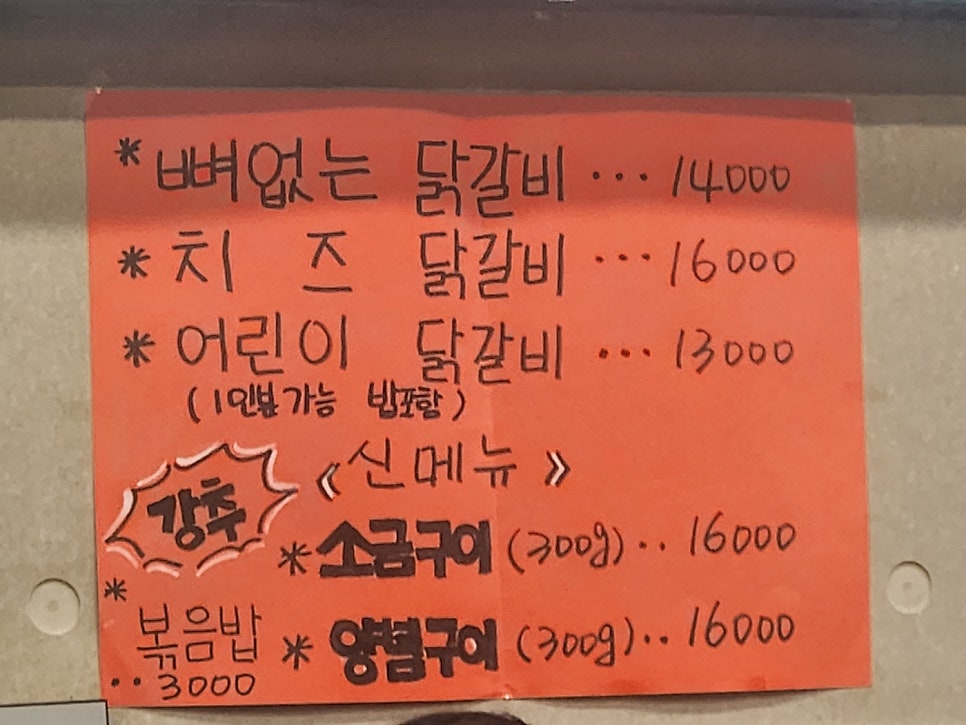 * 뼈없는 닭갈비 ... 14000
* 치즈 닭갈비 ... 16000
* 어린이 닭갈비 ... 13000
(1인분가능 밥포함)
《신메뉴》
강추
* 소금구이 (300g) .. 16000
* 양념구이 (300g) .. 16000
* 볶음밥
.. 3000